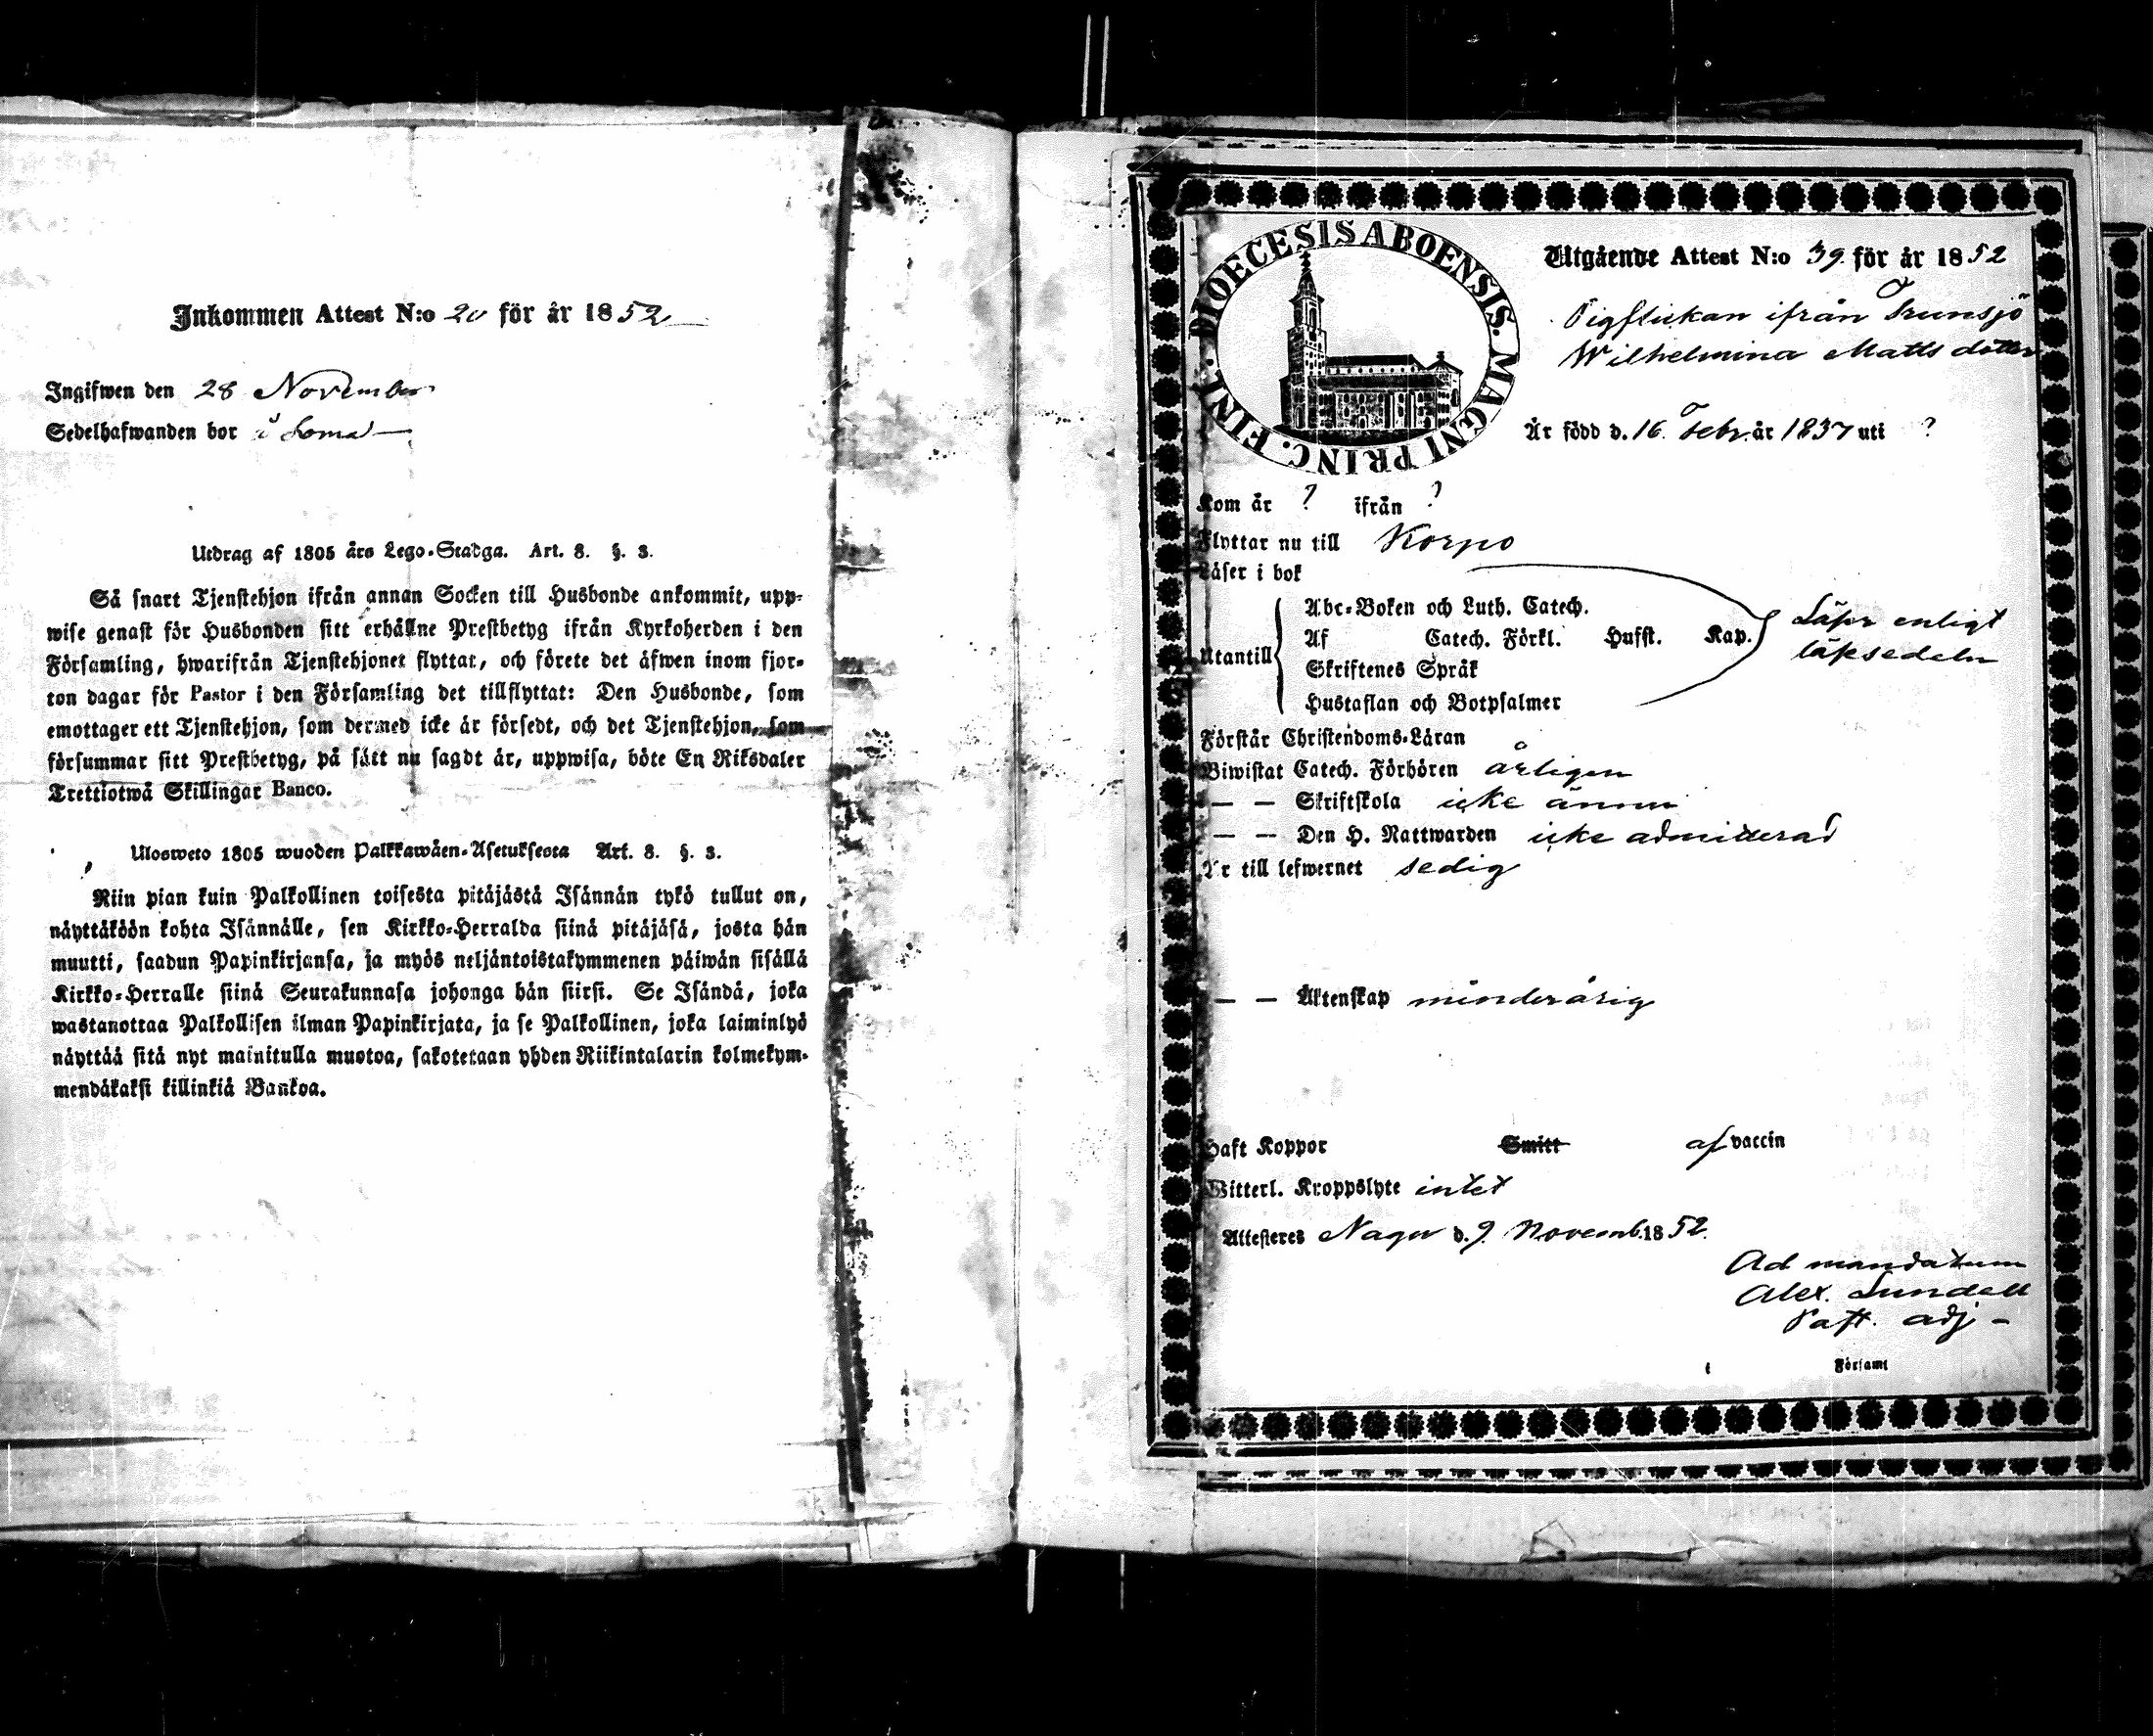 Inkommen Attest N:o 20 för år 1852
Ingifwen den 28 November
Sedelhafwanden bor å Loma
Utdrag af 1805 års Lego-Stadga. Art. 8. §. 3.
Så snart Tjenstehjon ifrån annan Socken till Husbonde ankommit, upp-
wise genast för Husbonden sitt erhållne Prestbetyg ifrån Kyrkoherden i den
Församling, hwarifrån Tjenstehjonet flyttat, och förete det äfwen inom fjor-
ton dagar för Pastor i den Församling det tillflyttat: Den Husbonde, som
emottager ett Tjenstehjon, som dermed icke är försedt, och det Tjenstehjon, som
försummar sitt Prestbetyg, på sätt nu sagdt är, uppwisa, böte En Riksdaler
Trettiotwå Skillingar Banco.
Ulosweto 1805 wuoden Palkkawäen-Asetuksesta Art. 8. §. 3.
Niin pian kuin Palkollinen toisesta pitäjästä Isännän tykö tullut on,
näyttäköön kohta Isännälle, sen Kirkko-Herralda siinä pitäjäsä, josta hän
muutti, saadun Papinkirjansa, ja myös neljäntoistakymmenen päiwän sisällä
Kirkko-Herralle siinä Seurakunnasa johonga hän siirsi. Se Isändä, joka
wastanottaa Palkollisen ilman Papinkirjata, ja se Palkollinen, joka laiminlyö
näyttää sitä nyt mainitulla muotoa, sakotetaan yhden Riikintalarin kolmekym-
mendäkaksi killinkiä Bankoa.
DIOECESIS ABOENSIS. MAGNI PRINC. FINL.
Utgående Attest N:o 39. för år 1852
Pigflickan ifrån Trunsjö
Wilhelmina Matts dotter
Är född d. 16. Febr. år 1837 uti ?
Kom år ? ifrån ?
Flyttar nu till Korpo
Läser i bok
Utantill
Abc-Boken och Luth. Catech.
Af Catech. Förkl. Husst. Kap.
Skriftenes Språk
Hustaflan och Botpsalmer
Läser enligt
läxsedeln
Förstår Christendoms-Läran
Biwistat Catech. Förhören årligen
— — Skriftskola icke ännu
— — Den H. Nattwarden icke admitterad
Är till lefwernet sedig
— — Äktenskap minderårig
Haft Koppor Smitt af vaccin
Witterl. Kroppslyte intet
Attesteres Nagu d. 9. Novemb. 1852.
Ad mandatum
Alex. Lundell
Past. adj -
i Församl